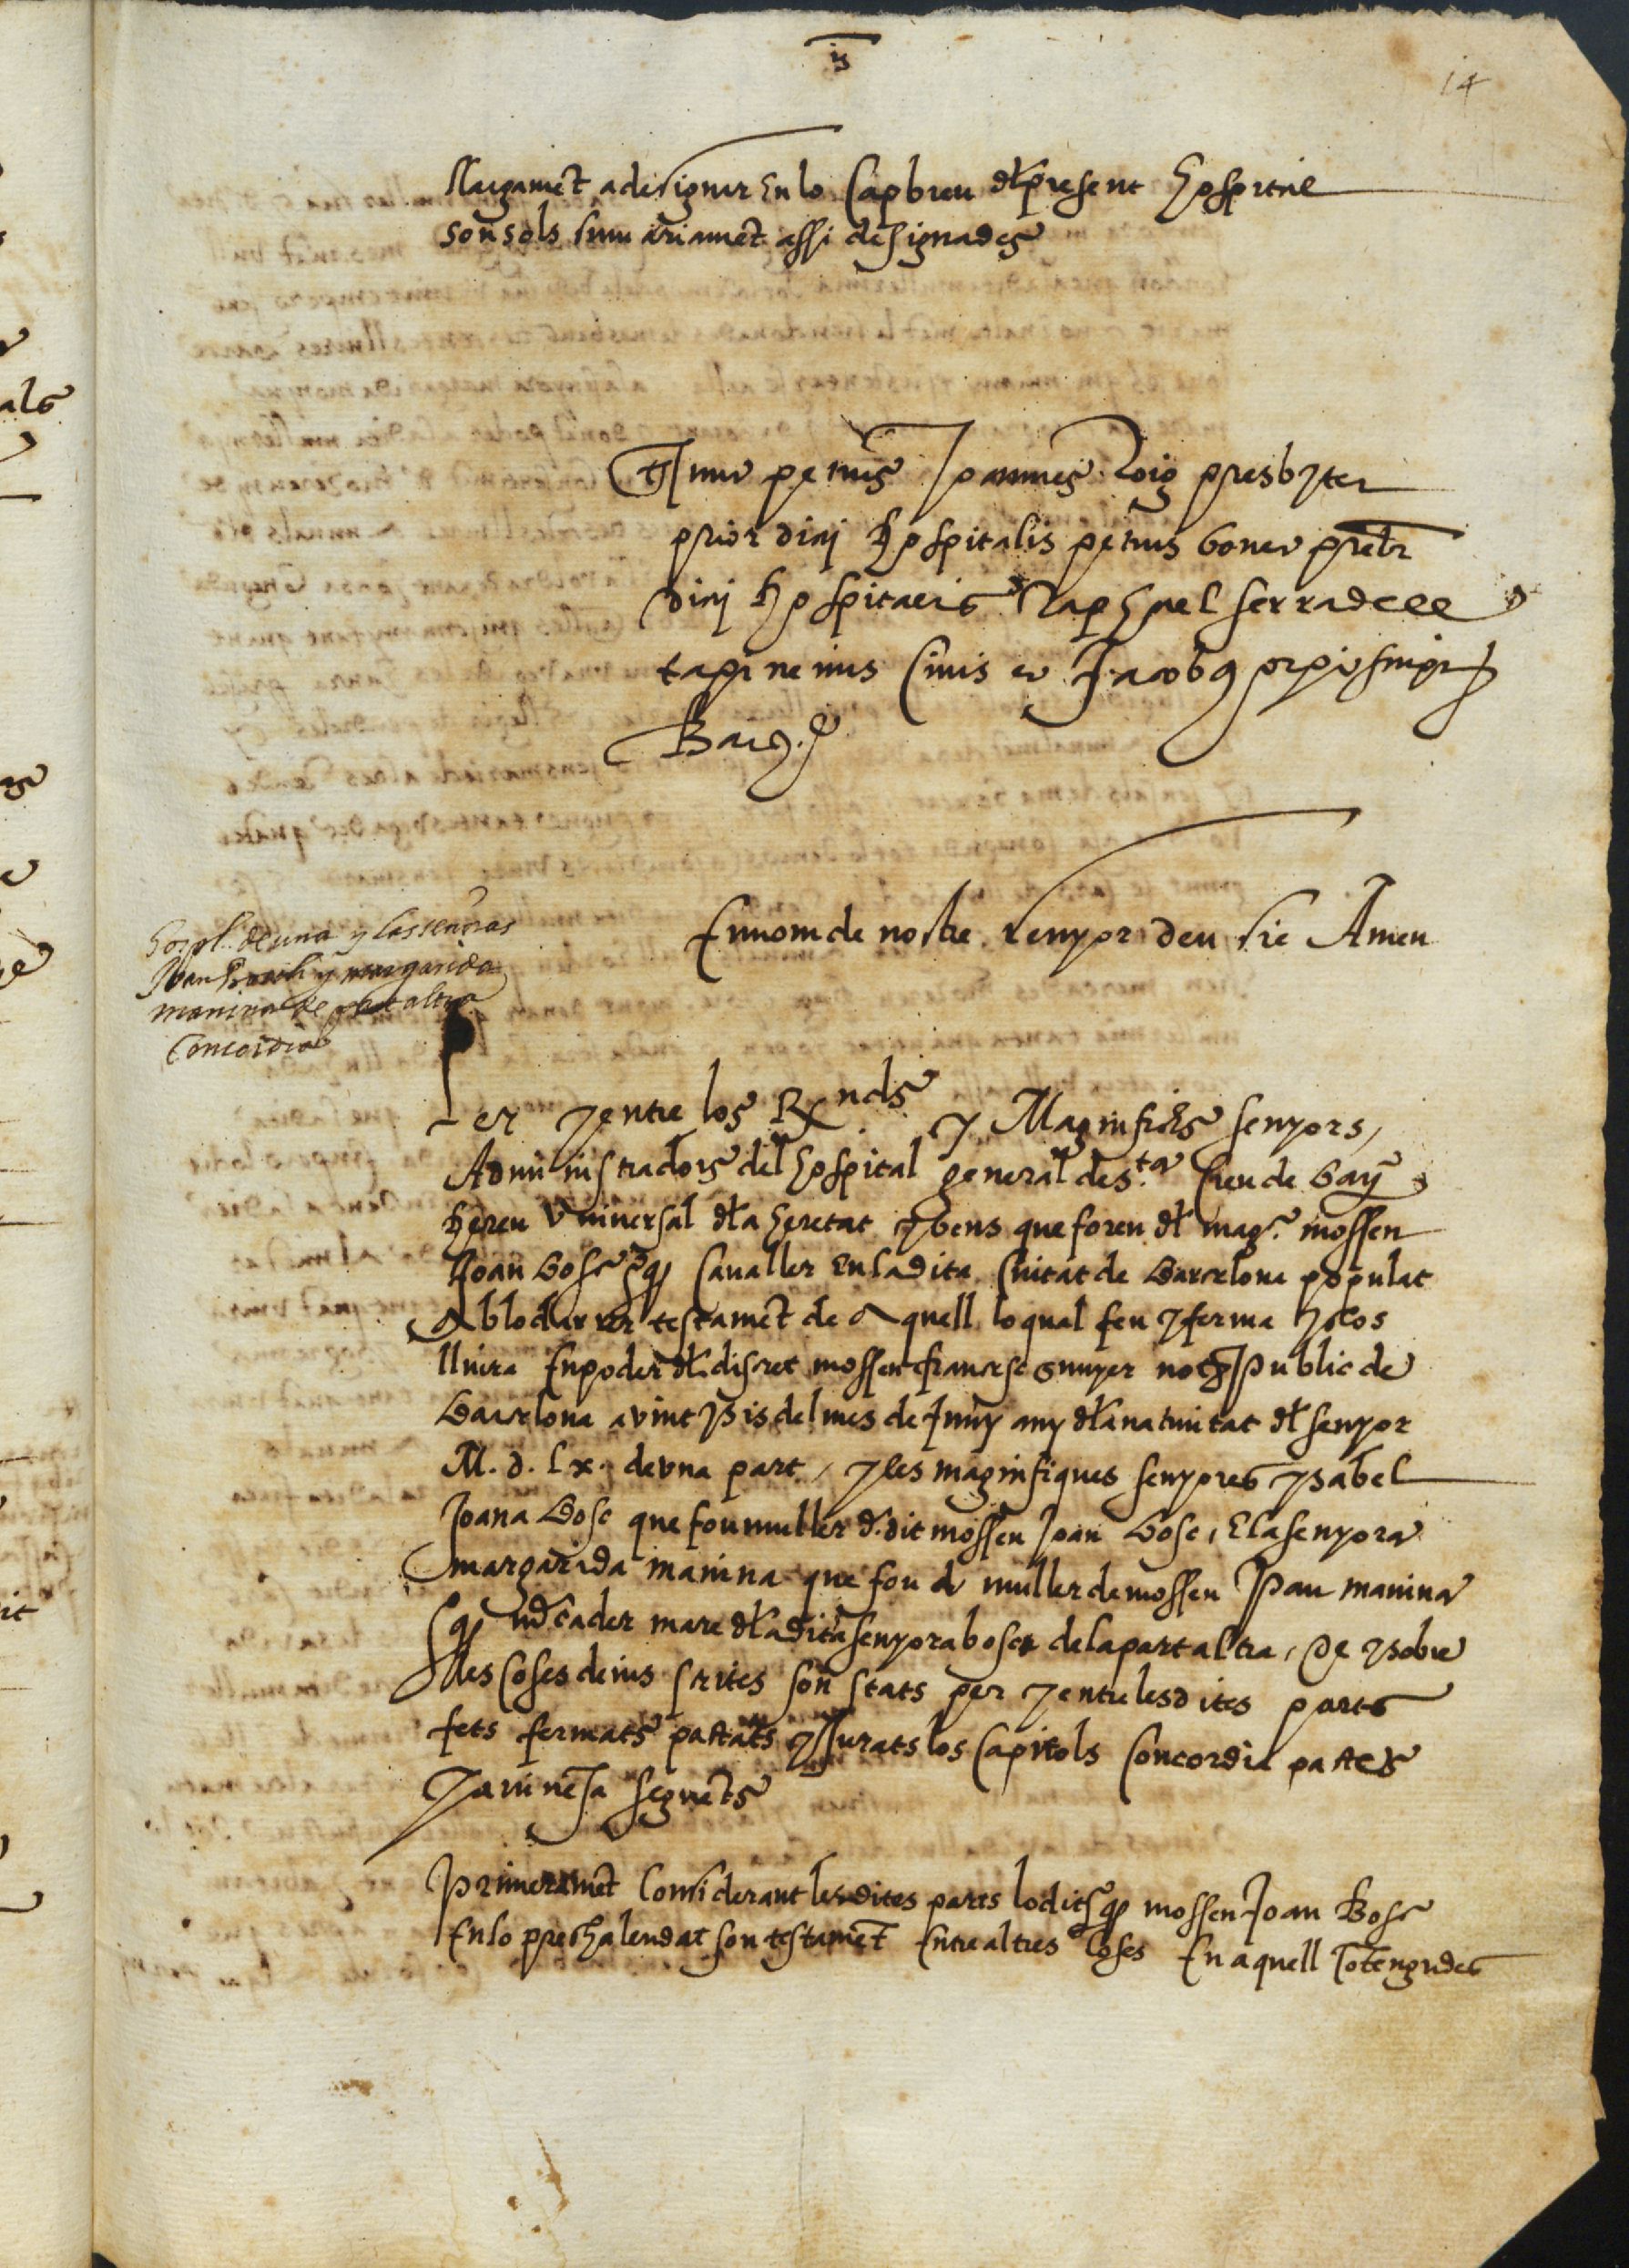 14
llargament a designar En lo Capbreu dl present Hospital
son sols sumariament assi designades
petrus Joannes Roig presbiter
prior dicti Hospitalis petrus boner
dicti Hospitalis Raphael serradell
civis et Jacobus
Barc.
En nom de nostre senyor deu sie Amen
Hospl. de una y las senoras
Joan Bosch y margarida
manina de part altra
Concordia
Per y entre los Rnds y Magnifichs senyors,
Administradors del Hospital general de s.ta Creu de bar.
Hereu Vniversal dla heretat y bens que foren dl mag. mossen
Joan bosc q° Cavaller En la dita Ciutat de Barcelona populat
Ab lo darrer testament de Aquell lo qual feu y ferma y clos
lliura En poder dl discret mossen francesc sunyer not. Public de
Barcelona a vint y sis del mes de Juny any dla nativitat dl senyor
M. d. lx. de vna part, y les magnifiques senyores ysabel
Joana Bosc que fou muller d. dit mossen Joan bosc, E la senyora
margarida manina que fou muller de mossen Pau manina
q° mercader mare dla dita senyora bosc de la part altra, De y sobre
les Coses deius scrites son stats per y entre les dites parts
fets fermats pactats y Jurats los Capitols Concordia pactes
y avinensa seguents
Primerament Considerant les dites parts lo dit q° mossen Joan Bosc
En lo prechalendat son testament Entre altres Coses En aquell Contengudes